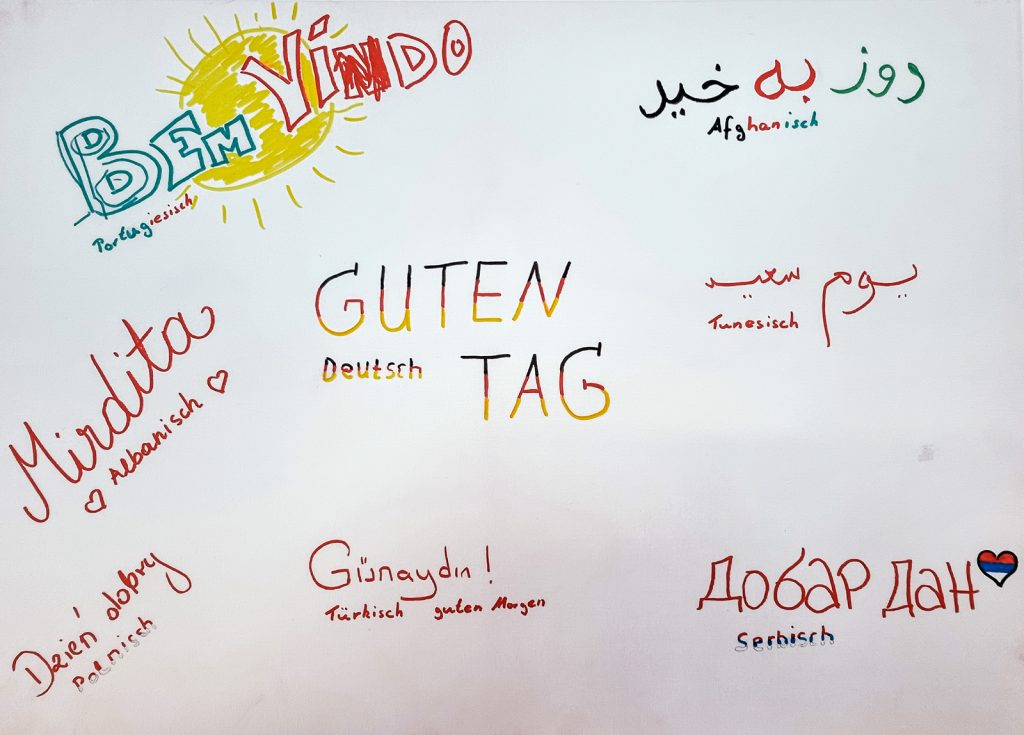 BEM VINDO
Portugiesisch
روز به خیر
Afghanisch
GUTEN
TAG
Deutsch
يوم سعيد
Tunesisch
Mirdita
Albanisch
Dzień dobry
Polnisch
Günaydın !
Türkisch guten Morgen
Добар Дан
Serbisch